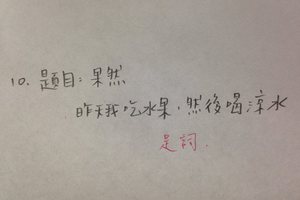 10. 題目：果然
昨天我吃水果，然後喝涼水
是詞.